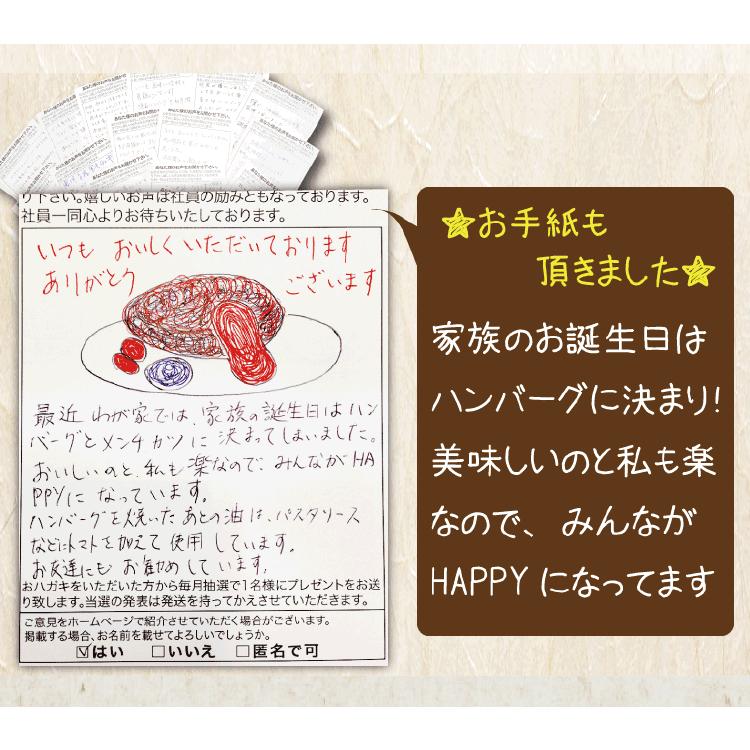 あなた様のお声をお聞かせ下さい。
り下さい。嬉しいお声は社員の励みともなっております。
社員一同心よりお待ちいたしております。
いつも おいしくいただいております
ありがとう ございます
最近 わが家では、家族の誕生日はハン
バーグとメンチカツに 決まってしまいました。
おいしいのと、私も楽なので、みんながHA
PPYに なっています。
ハンバーグを焼いたあとの油は、パスタソース
などにトマトを加えて 使用しています。
お友達にも お勧めしています。
おハガキをいただいた方から毎月抽選で1名様にプレゼントをお送
り致します。当選の発表は発送を持ってかえさせていただきます。
ご意見をホームページで紹介させていただく場合がございます。
掲載する場合、お名前を載せてよろしいでしょうか。
☑はい □いいえ □匿名で可
★お手紙も
頂きました★
家族のお誕生日は
ハンバーグに決まり!
美味しいのと私も楽
なので、みんなが
HAPPYになってます